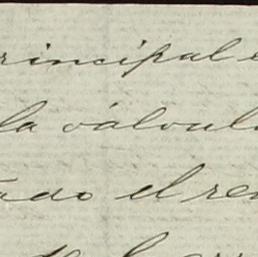 rincipal e
la válvul
ado el re